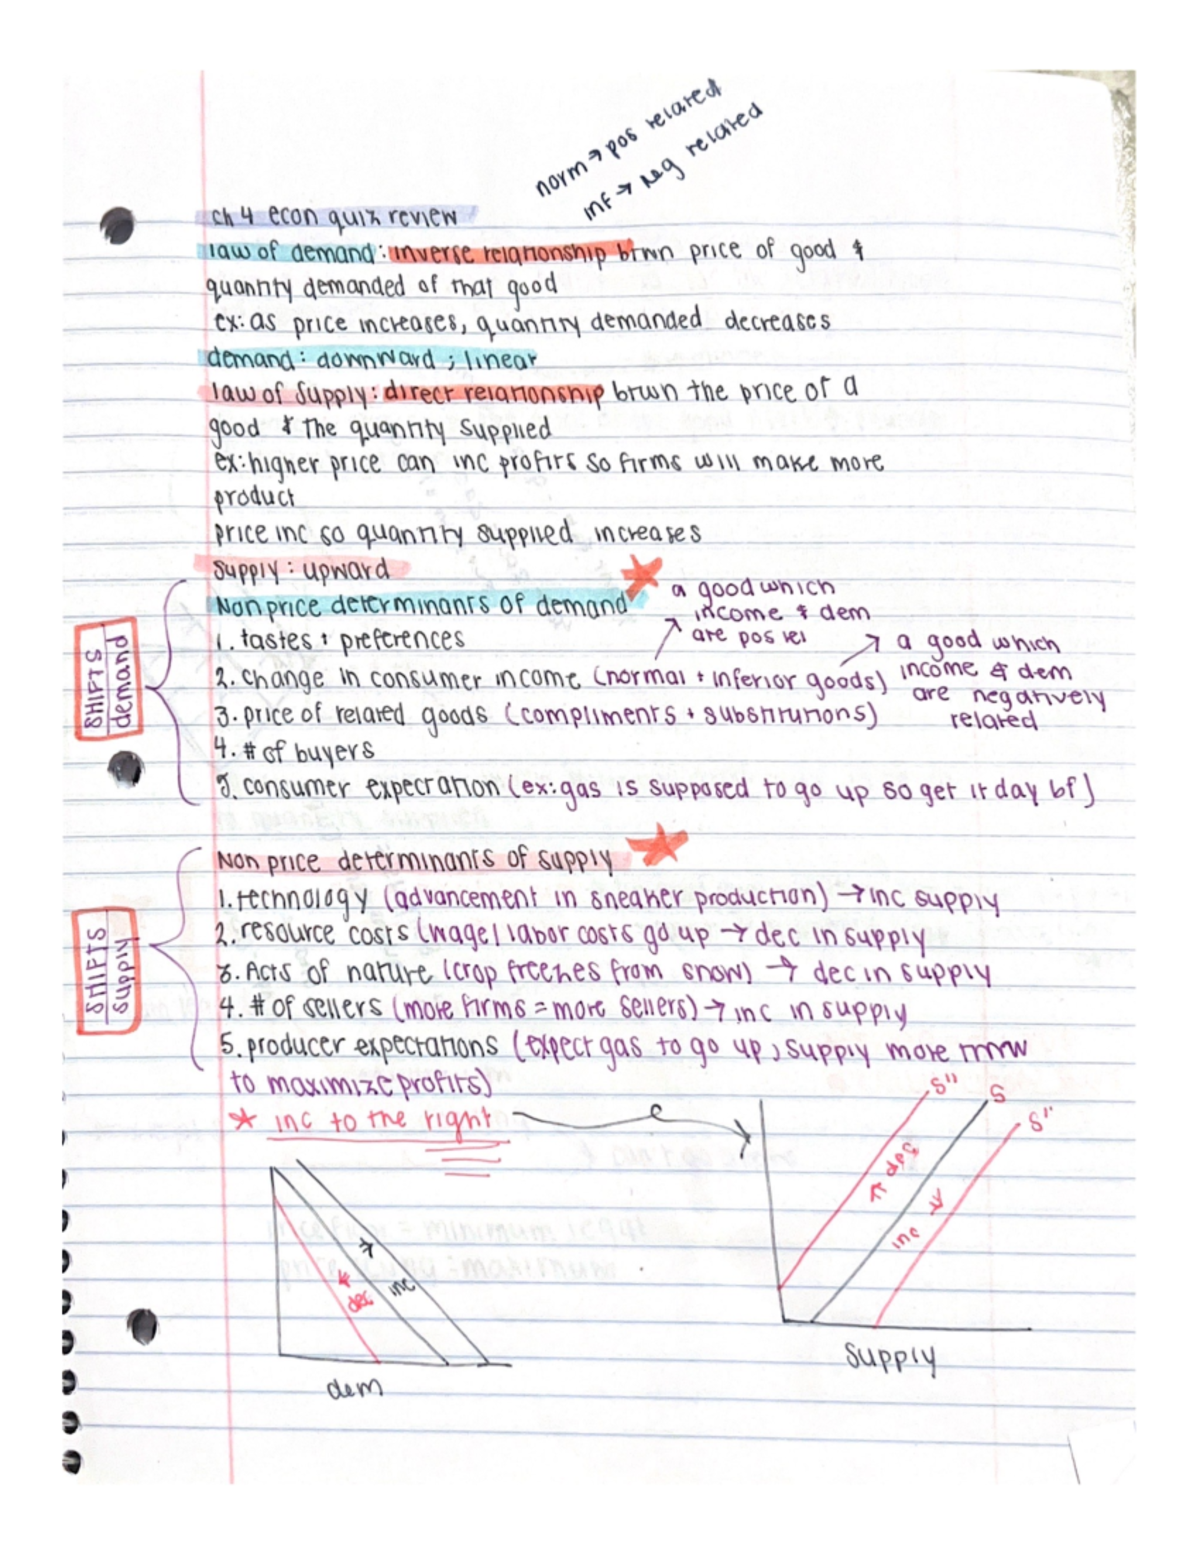 norm → pos related
inf → neg related
ch 4 econ quiz review
law of demand: inverse relationship btwn price of good &
quantity demanded of that good
ex: as price increases, quantity demanded decreases
demand: downward; linear
law of supply: direct relationship btwn the price of a
good & the quantity supplied
ex: higher price can inc profits so firms will make more
product
price inc so quantity supplied increases
supply: upward
Nonprice determinants of demand
a good which
income & dem
are pos rel
1. tastes + preferences
a good which
income & dem
are negatively
related
2. change in consumer income (normal + inferior goods)
3. price of related goods (compliments + substitutions)
4. # of buyers
5. consumer expectation (ex: gas is supposed to go up so get it day bf)
SHIFTS
demand
Non price determinants of supply
1. technology (advancement in sneaker production) → inc supply
2. resource costs (wage/labor costs go up → dec in supply
3. Acts of nature (crop freezes from snow) → dec in supply
4. # of sellers (more firms = more sellers) → inc in supply
5. producer expectations (expect gas to go up, supply more tmrw
to maximize profits)
SHIFTS
supply
* inc to the right
dec
inc
dem
S"
S
S"
dec
inc
supply